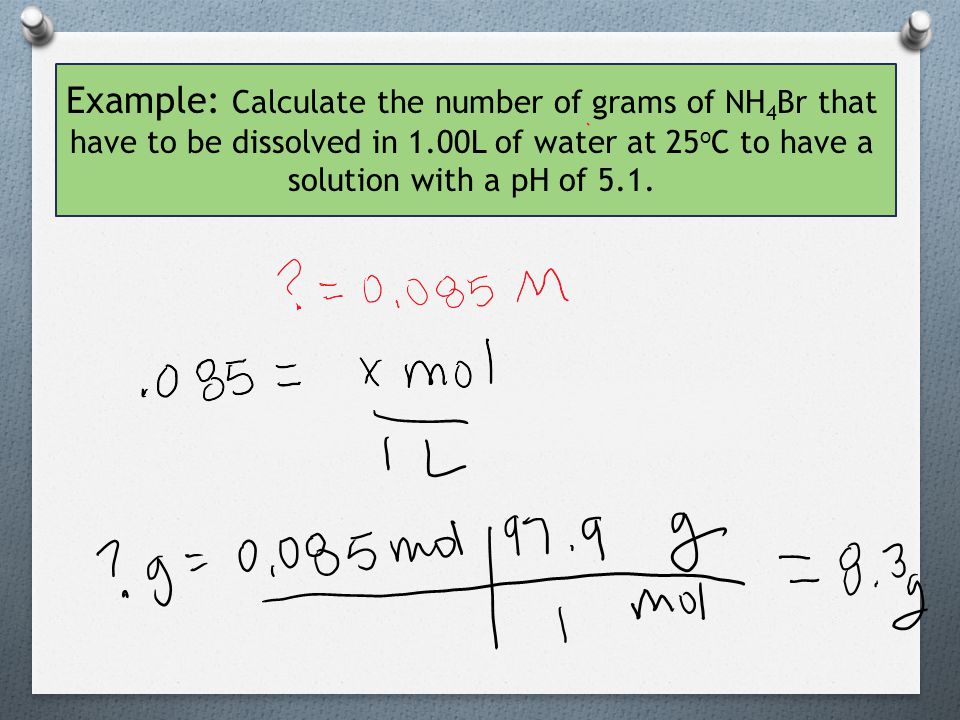 Example: Calculate the number of grams of NH₄Br that
have to be dissolved in 1.00L of water at 25ºC to have a
solution with a pH of 5.1.
? = 0.085 M
.085 = x mol
1 L
? g = 0.085 mol | 97.9 g = 8.3 g
1 mol